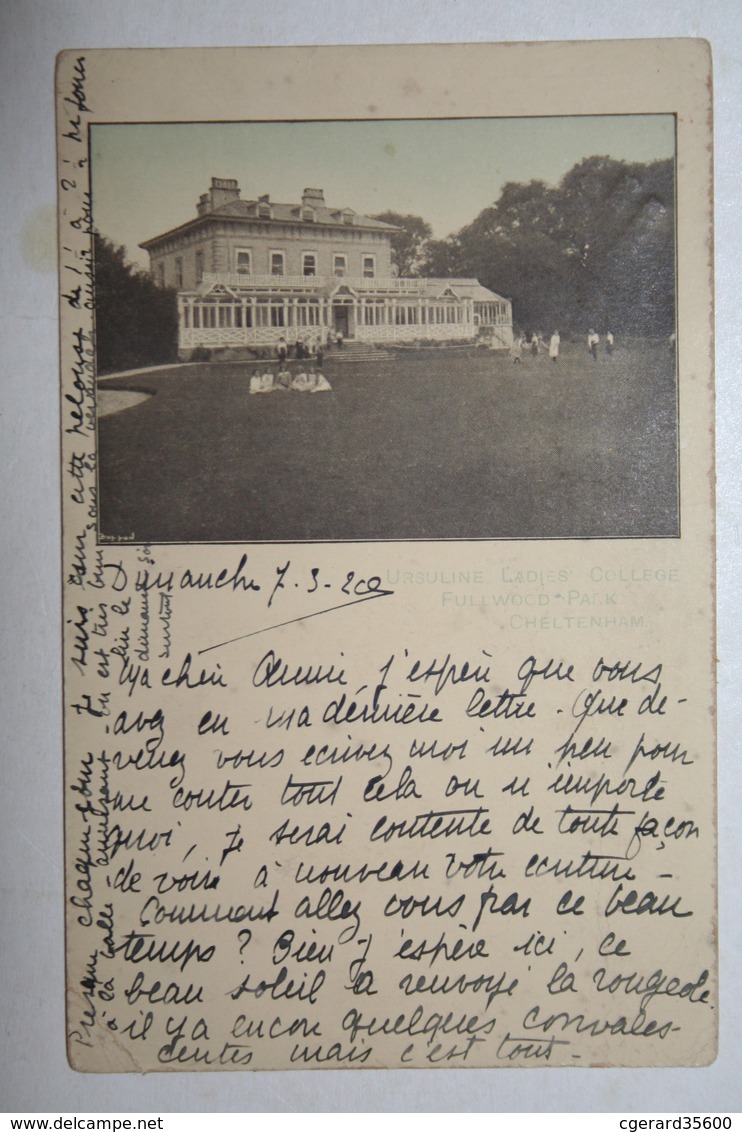 URSULINE LADIES' COLLEGE
FULLWOOD PARK
CHELTENHAM.
Dimanche 7-3-20
Ma chère Annie, j'espère que vous
avez eu ma dernière lettre. Que de-
venez vous écrivez moi un peu pour
me conter tout cela ou n'importe
quoi, je serai contente de toute façon
de voir à nouveau votre écriture -
Comment allez vous par ce beau
temps ? Bien j'espère ici, ce
beau soleil a renvoyé la rougeole.
il y a encore quelques convales-
centes mais c'est tout -
Presque chaque jour je suis sur cette pelouse de 1 à 2 à
à la balle amusant on est très bien sous la
dimanche
surtout
delcampe.net
cgerard35600